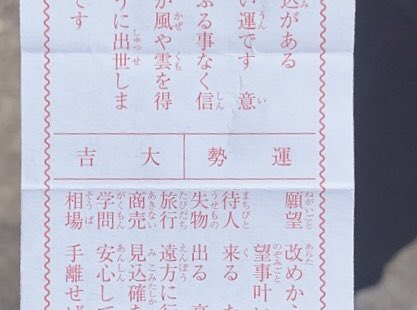 込がある
い運です 意
ぶる事なく信
が風や雲を得
うに出世しま
です
運勢
大吉
願望 改めか
望事叶い
待人 来る
失物 出る
旅行 遠方に行
商売 見込確
学問 安心して
相場 手離せば